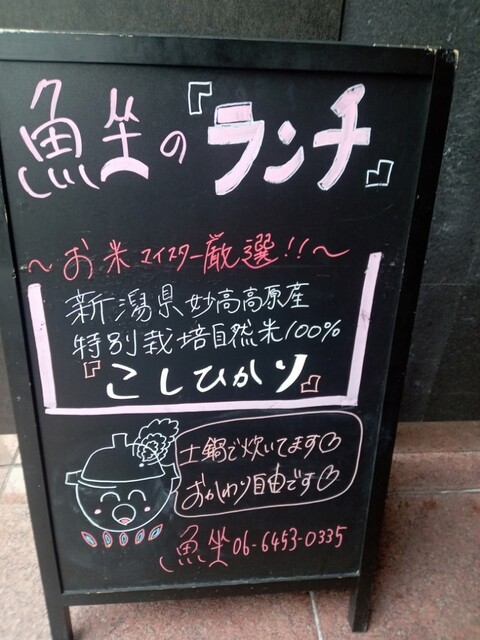 魚坐の『ランチ』
～お米マイスター厳選!!～
新潟県妙高高原産
特別栽培自然米100%
『こしひかり』
土鍋で炊いてます
おかわり自由です
魚坐 06-6453-0335